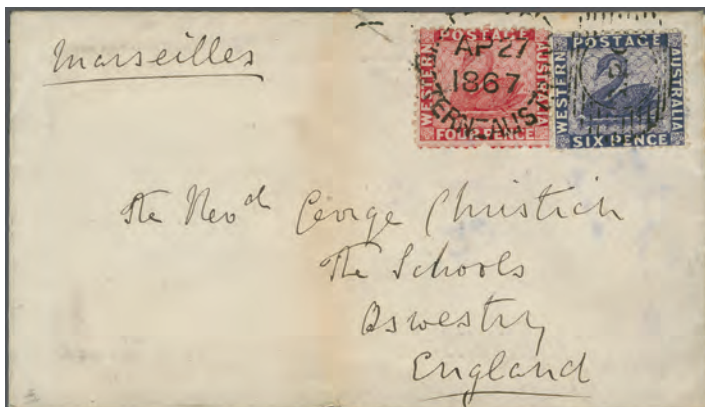 Marseilles
POSTAGE
WESTERN
AUSTRALIA
FOUR PENCE
POSTAGE
WESTERN
AUSTRALIA
SIX PENCE
AP 27
1867
The Revd George Christich
The Schools
Oswestry
England